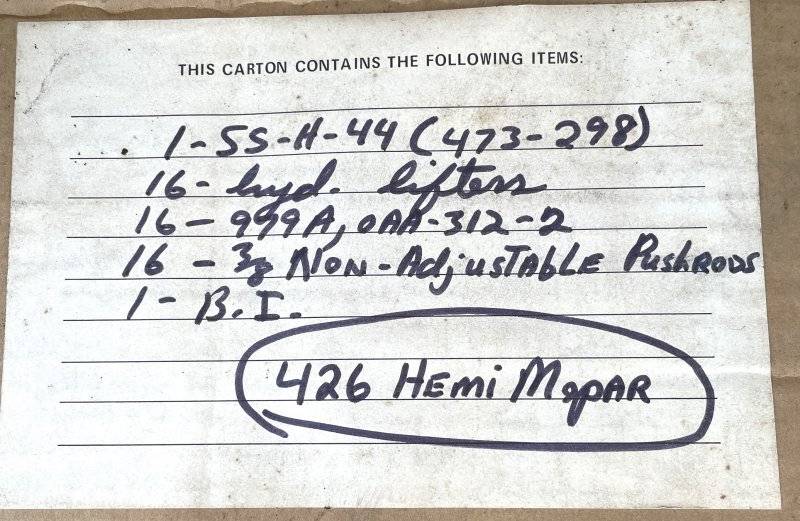 THIS CARTON CONTAINS THE FOLLOWING ITEMS:
1-SS-H-44 (473-298)
16- hyd. lifters
16-999A, OAA-312-2
16-3/8 NON-AdjUSTAbLE PushRODS
1-B.I.
426 HEMi MOPAR